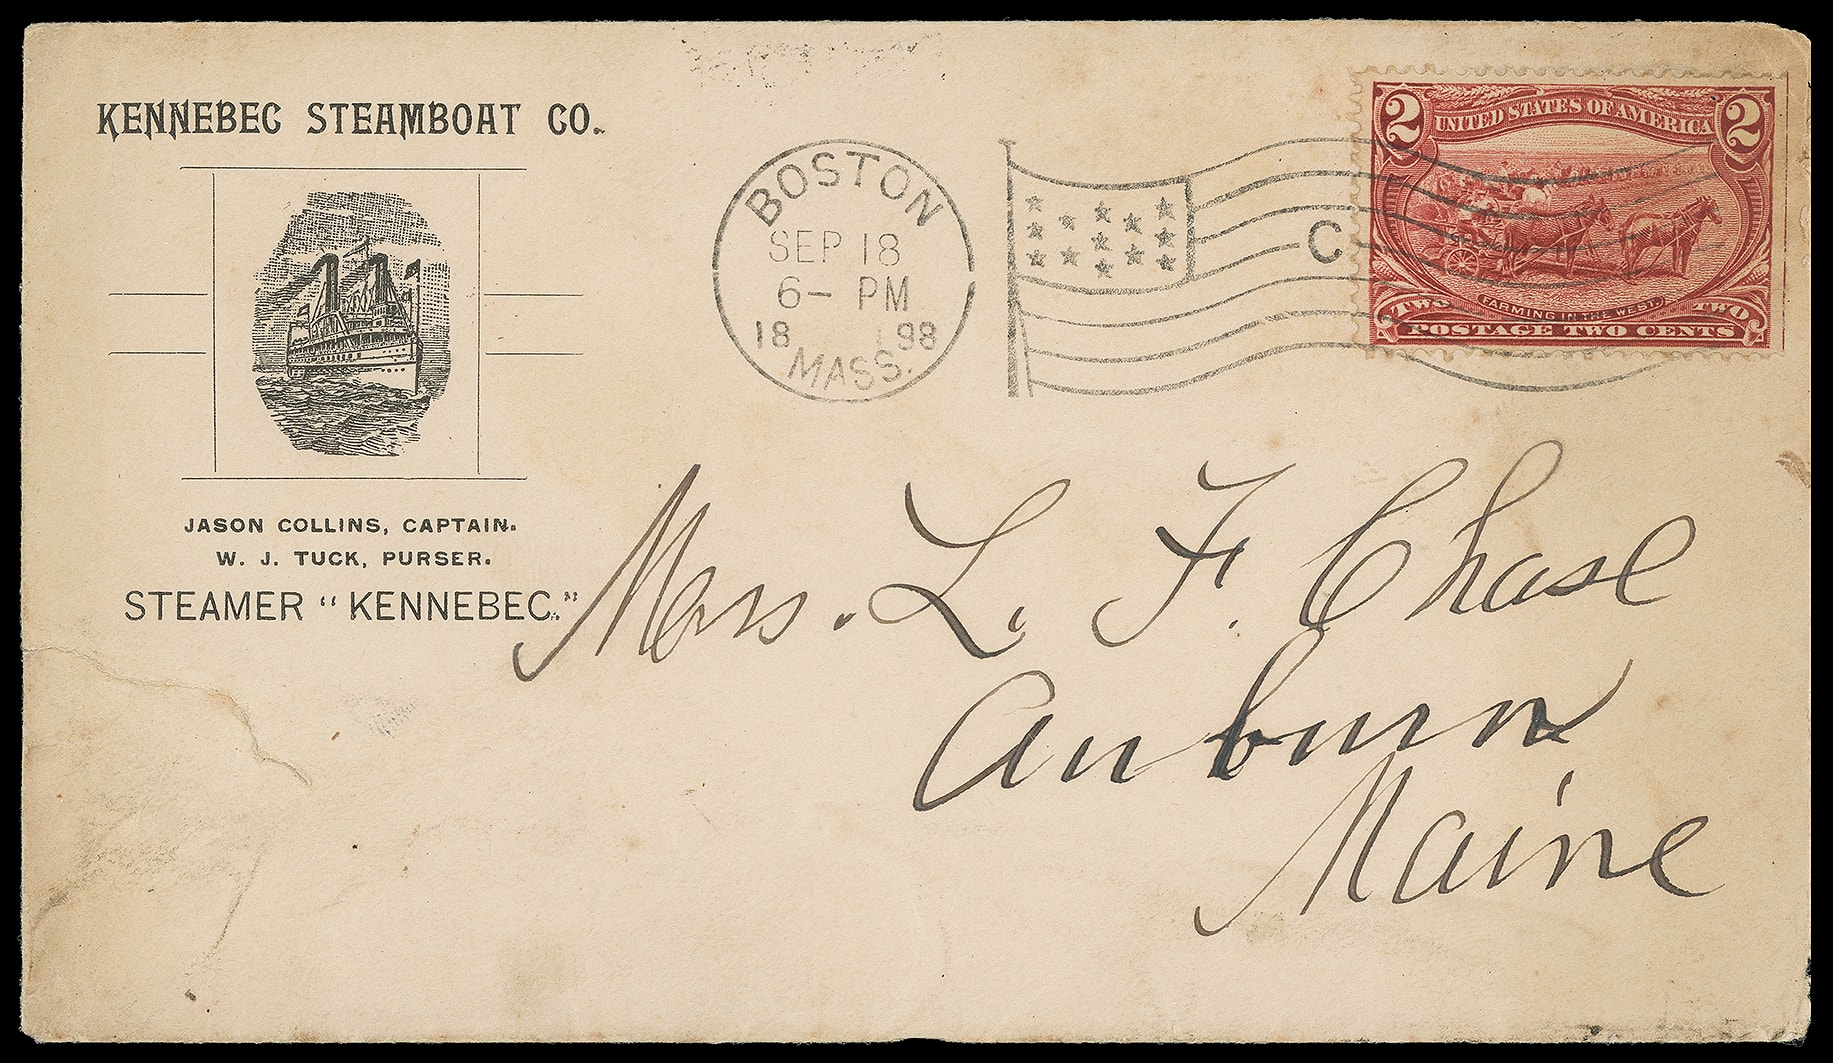 KENNEBEC STEAMBOAT CO.
JASON COLLINS, CAPTAIN.
W. J. TUCK, PURSER.
STEAMER "KENNEBEC."
BOSTON
SEP 18
6– PM
18 98
MASS.
C
2 2
UNITED STATES OF AMERICA
FARMING IN THE WEST.
TWO TWO
POSTAGE TWO CENTS
Mrs. L. F. Chase
Auburn
Maine